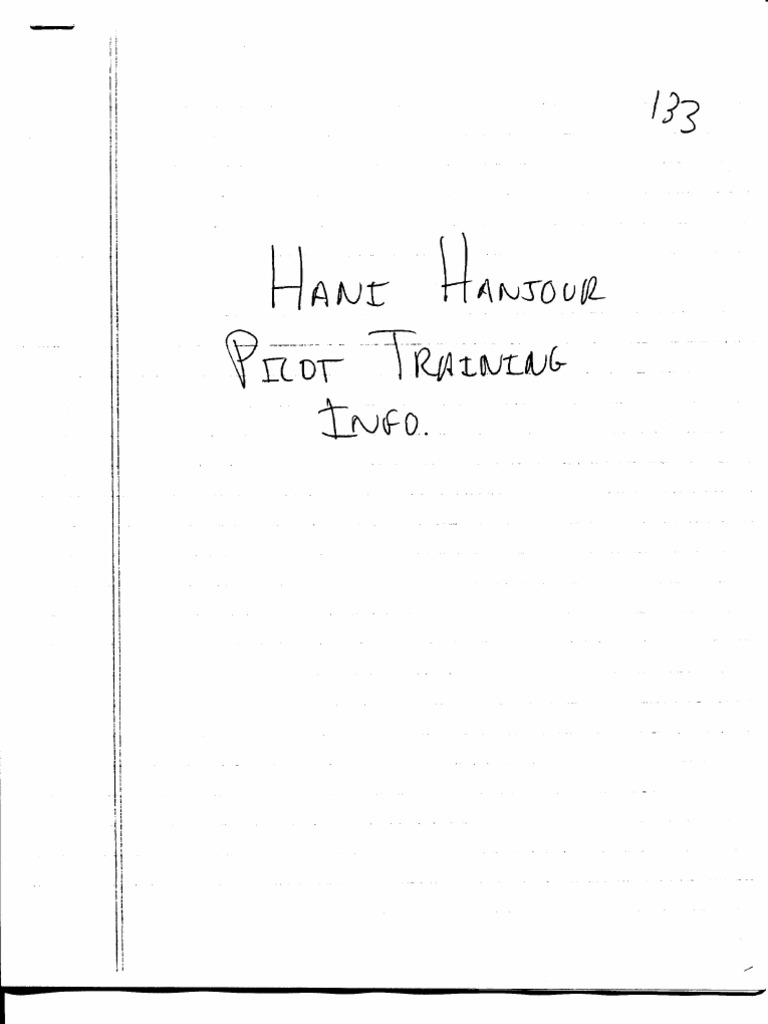 133
HANI HANJOUR
PILOT TRAINING
INFO.